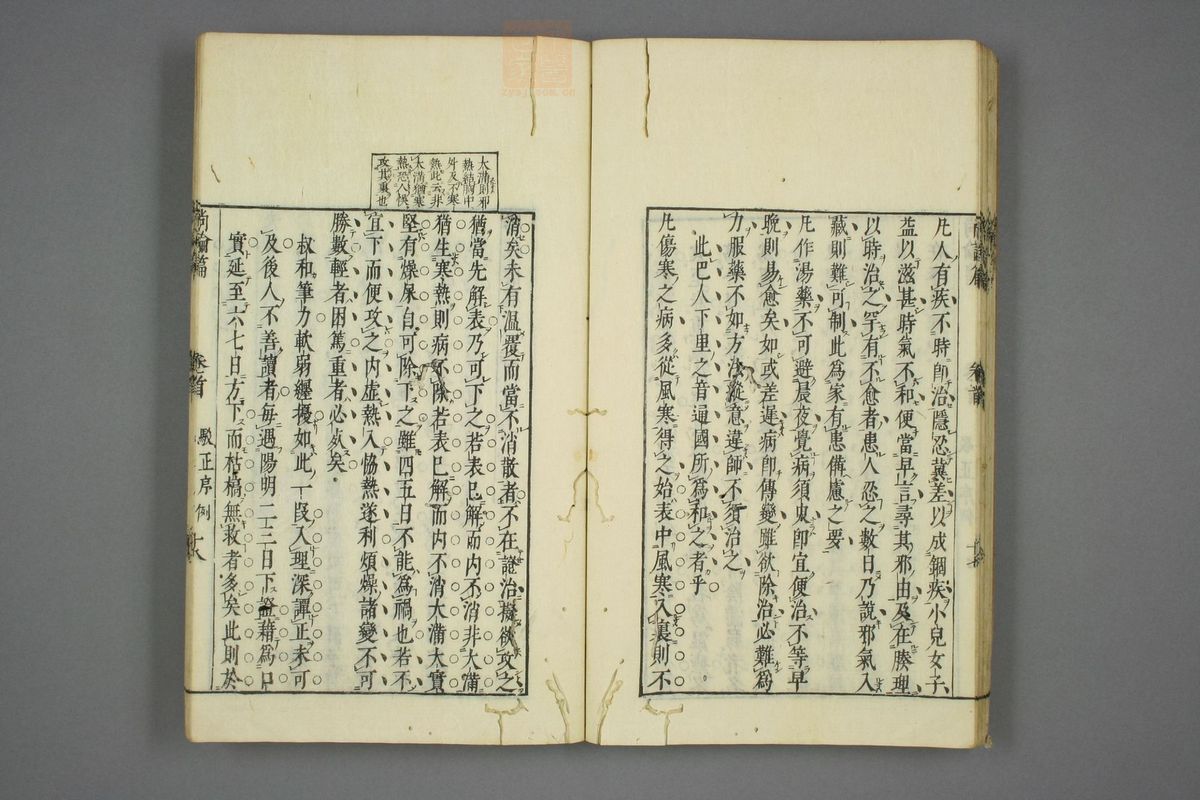 凡人有疾不時即治隱忍冀差以成錮疾小兒女子
益以滋甚時氣不和便當早言尋其邪由及在腠理
以時治之罕有不愈者患人忍之數日乃說邪氣入
藏則難可制此為家有患備慮之要
凡作湯藥不可避晨夜覺病須臾即宜便治不等早
晚則易愈矣如或差遲病即傳變雖欲除治必難為
力服藥不如方法縱意違師不須治之
此巴人下里之音遍國所為和之者乎
凡傷寒之病多從風寒得之始表中風寒入裏則不
尚論篇
卷首
大滿則邪
熱結胸中
外反不寒
熱此云非
大滿猶寒
熱恐人悞
攻其裏也
消矣未有溫覆而當不消散者不在證治擬欲攻之
猶當先解表乃可下之若表已解而内不消非大滿
猶生寒熱則病不除若表已解而内不消大滿大實
堅有燥屎自可除下之雖四五日不能為禍也若不
宜下而便攻之内虛熱入恊熱遂利煩燥諸變不可
勝數輕者困篤重者必死矣
叔和筆力軟弱纒擾如此一段入理深譚正未可
及後人不善讀者每遇陽明二三日下證藉為口
實延至六七日方下而枯槁無救者多矣此則於
尚論篇
卷首
駁正序例
十八
zysj.com.cn